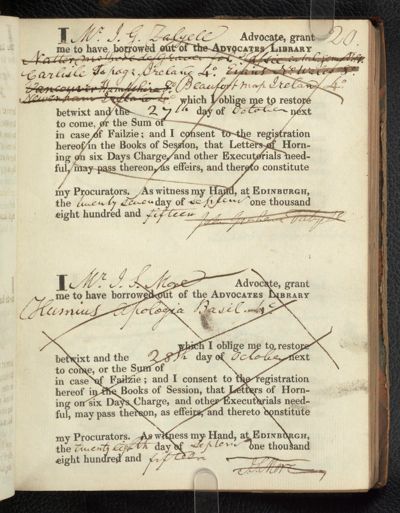 20.
I Mr. J. G. Dalyell Advocate, grant
me to have borrowed out of the ADVOCATES LIBRARY
Carlisle Topog: Ireland 4o.
Hampshire Beaufort map Ireland 4o.
which I oblige me to restore
betwixt and the 27th day of October next
to come, or the Sum of
in case of Failzie; and I consent to the registration
hereof in the Books of Session, that Letters of Horn-
ing on six Days Charge, and other Executorials need-
ful, may pass thereon, as effeirs, and thereto constitute
my Procurators. As witness my Hand, at EDINBURGH,
the twenty seven day of Septem one thousand
eight hundred and fifteen
John Graham Dalyell
I Mr. J. S. More Advocate, grant
me to have borrowed out of the ADVOCATES LIBRARY
Apologia Basil
which I oblige me to restore
betwixt and the 28th day of October next
to come, or the Sum of
in case of Failzie; and I consent to the registration
hereof in the Books of Session, that Letters of Horn-
ing on six Days Charge, and other Executorials need-
ful, may pass thereon, as effeirs, and thereto constitute
my Procurators. As witness my Hand, at EDINBURGH,
the twenty eighth day of Septem one thousand
eight hundred and fifteen
J. S. More